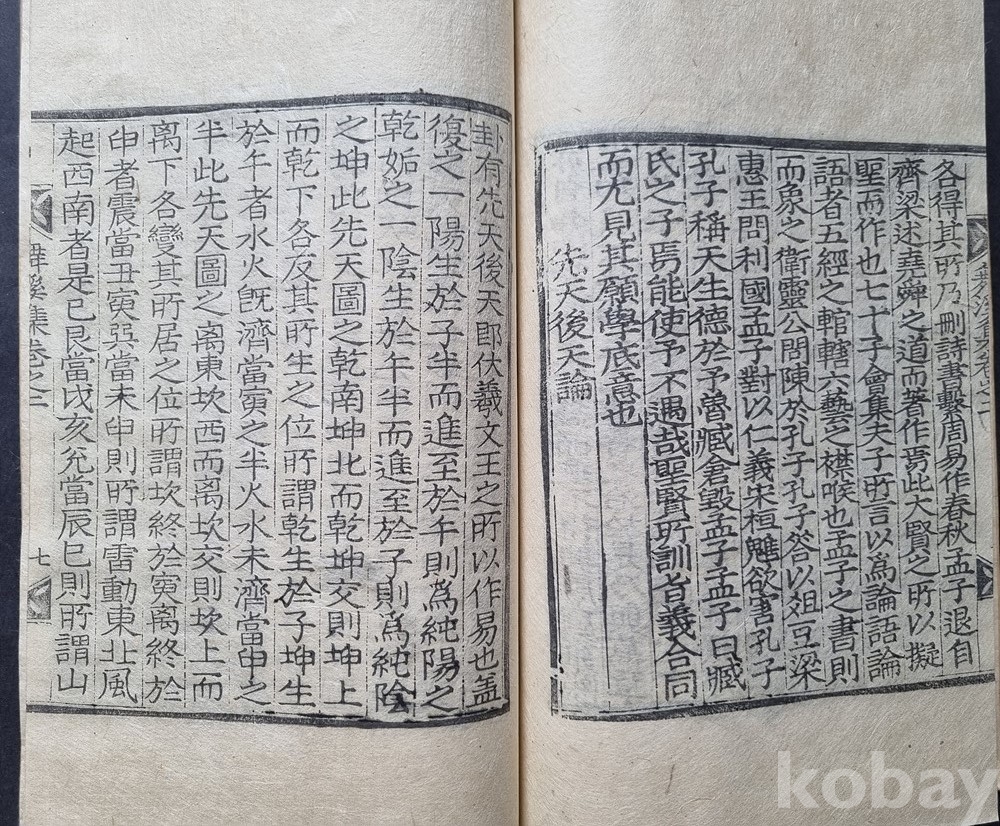 各得其所乃刪詩書繫周易作春秋孟子退自
齊梁述堯舜之道而著作焉此大賢之所以擬
聖而作也七十子會集夫子所言以爲論語論
語者五經之輨轄六藝之襟喉也孟子之書則
而象之衛靈公問陳於孔子孔子答以俎豆梁
惠王問利國孟子對以仁義宋桓魋欲害孔子
孔子稱天生德於予魯臧倉毀孟子孟子曰臧
氏之子焉能使予不遇哉聖賢所訓旨義合同
而尤見其願學底意也
先天後天論
卦有先天後天卽伏羲文王之所以作易也盖
復之一陽生於子半而進至於午則爲純陽之
乾姤之一陰生於午半而進至於子則爲純陰
之坤此先天圖之乾南坤北而乾坤交則坤上
而乾下各反其所生之位所謂乾生於子坤生
於午者水火旣濟當寅之半火水未濟當申之
半此先天圖之离東坎西而离坎交則坎上而
离下各變其所居之位所謂坎終於寅离終於
申者震當丑寅巽當未申則所謂雷動東北風
起西南者是已艮當戌亥兊當辰巳則所謂山
集卷之二
七
kobay